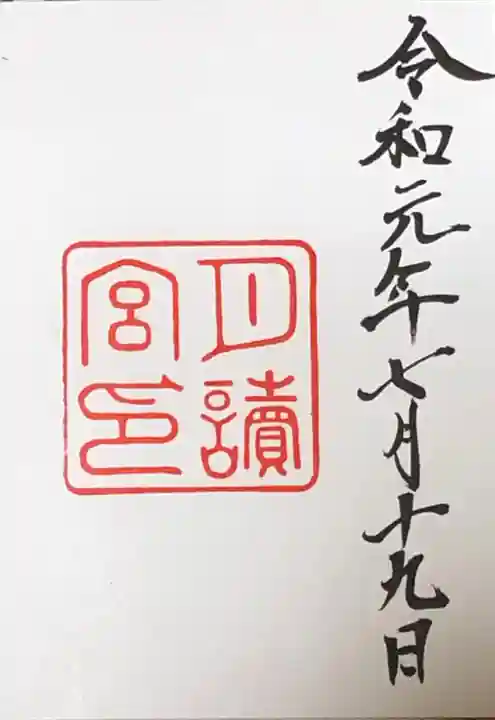 令和元年七月十九日
月讀
宮印